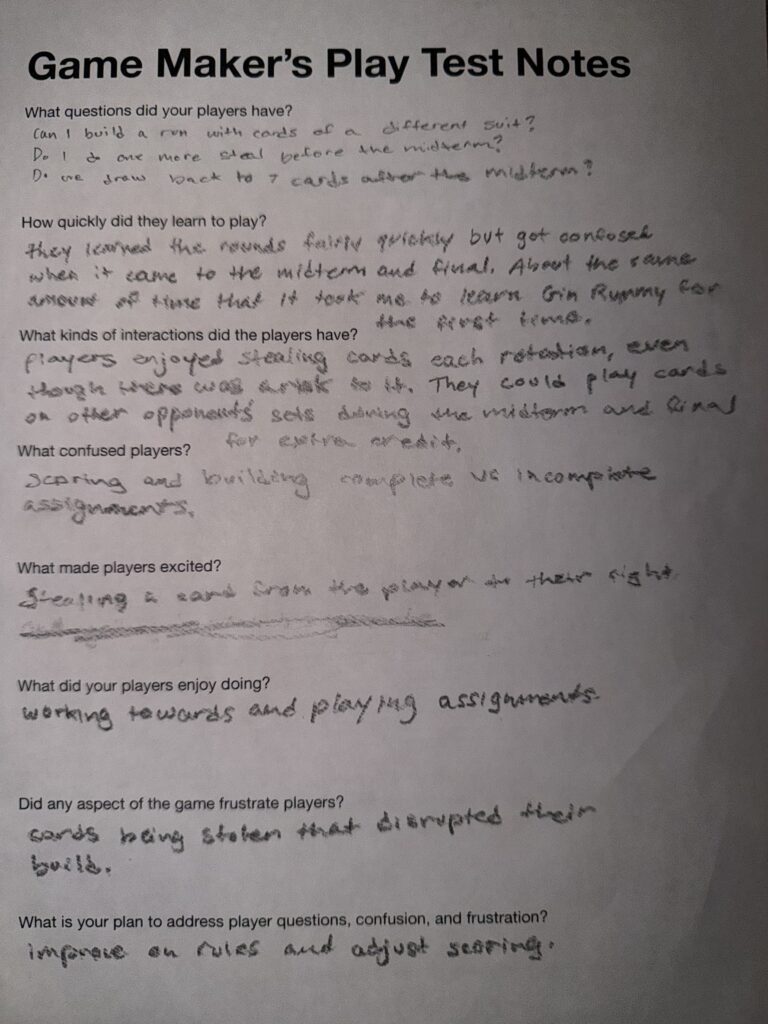 Game Maker's Play Test Notes
What questions did your players have?
Can I build a run with cards of a different suit?
Do I do one more steal before the midterm?
Do we draw back to 7 cards after the midterm?
How quickly did they learn to play?
they learned the rounds fairly quickly but got confused
when it came to the midterm and final. About the same
amount of time that it took me to learn Gin Rummy for
the first time.
What kinds of interactions did the players have?
Players enjoyed stealing cards each rotation, even
though there was a risk to it. They could play cards
on other opponents' sets during the midterm and final
for extra credit.
What confused players?
Scoring and building complete vs incomplete
assignments.
What made players excited?
Stealing a card from the player to their right.
What did your players enjoy doing?
working towards and playing assignments.
Did any aspect of the game frustrate players?
cards being stolen that disrupted their
build.
What is your plan to address player questions, confusion, and frustration?
improve on rules and adjust scoring.